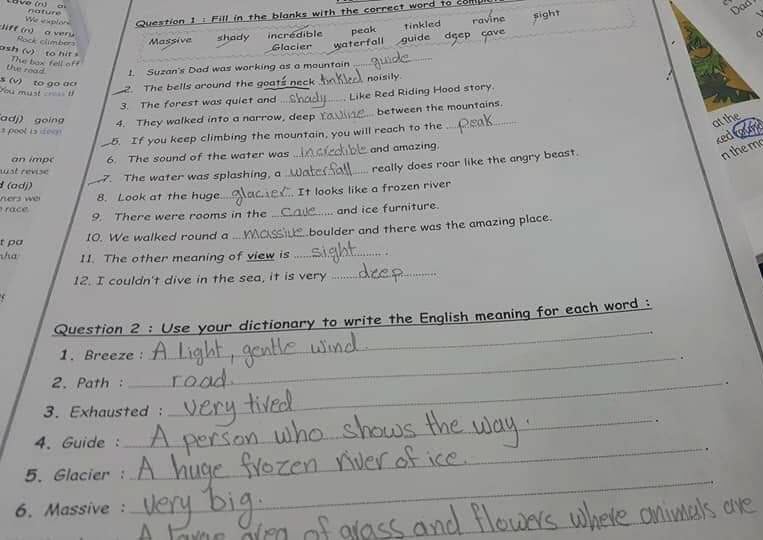 nature
We explore
cliff (n) a very
Rock climbers
(v) to hit s
The box fell off
the road.
s (v) to go ac
You must cross t
(adj) going
s pool is deep
an impo
ust revise
(adj)
ners we
race.
Question 1 : Fill in the blanks with the correct word to
Massive shady incredible peak tinkled ravine sight
Glacier waterfall guide deep cave
1. Suzan's Dad was working as a mountain guide
2. The bells around the goat's neck tinkled noisily.
3. The forest was quiet and shady. Like Red Riding Hood story.
4. They walked into a narrow, deep ravine between the mountains.
5. If you keep climbing the mountain, you will reach to the peak
6. The sound of the water was incredible and amazing.
7. The water was splashing, a waterfall really does roar like the angry beast.
8. Look at the huge glacier. It looks like a frozen river
9. There were rooms in the cave and ice furniture.
10. We walked round a massive boulder and there was the amazing place.
11. The other meaning of view is sight.
12. I couldn't dive in the sea, it is very deep
Question 2 : Use your dictionary to write the English meaning for each word :
1. Breeze : A light, gentle wind.
2. Path : road.
3. Exhausted : very tired
4. Guide : A person who shows the way.
5. Glacier : A huge frozen river of ice.
6. Massive : very big.
A large area of grass and flowers where animals are
Dad
at the
n the mo